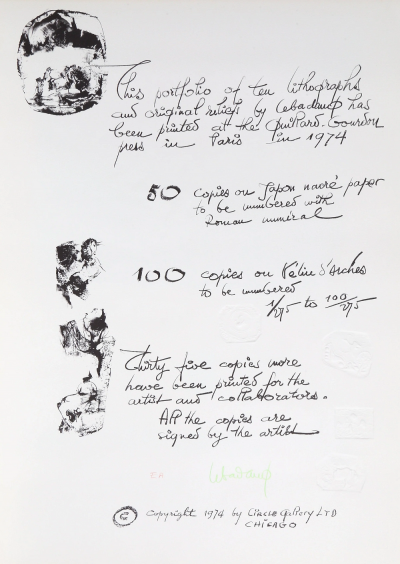 This portfolio of ten lithographs
and original relief by Lebadang has
been printed at the Guillard-Gourdon
press in Paris in 1974
50 copies on Japon nacré paper
to be numbered with
Roman numiral
100 copies on Vélin d'Arches
to be numbered
1/275 to 100/275
Thirty five copies more
have been printed for the
artist and collaborators.
All the copies are
signed by the artist
Lebadang
Copyright 1974 by Circle Gallery LTD
CHICAGO